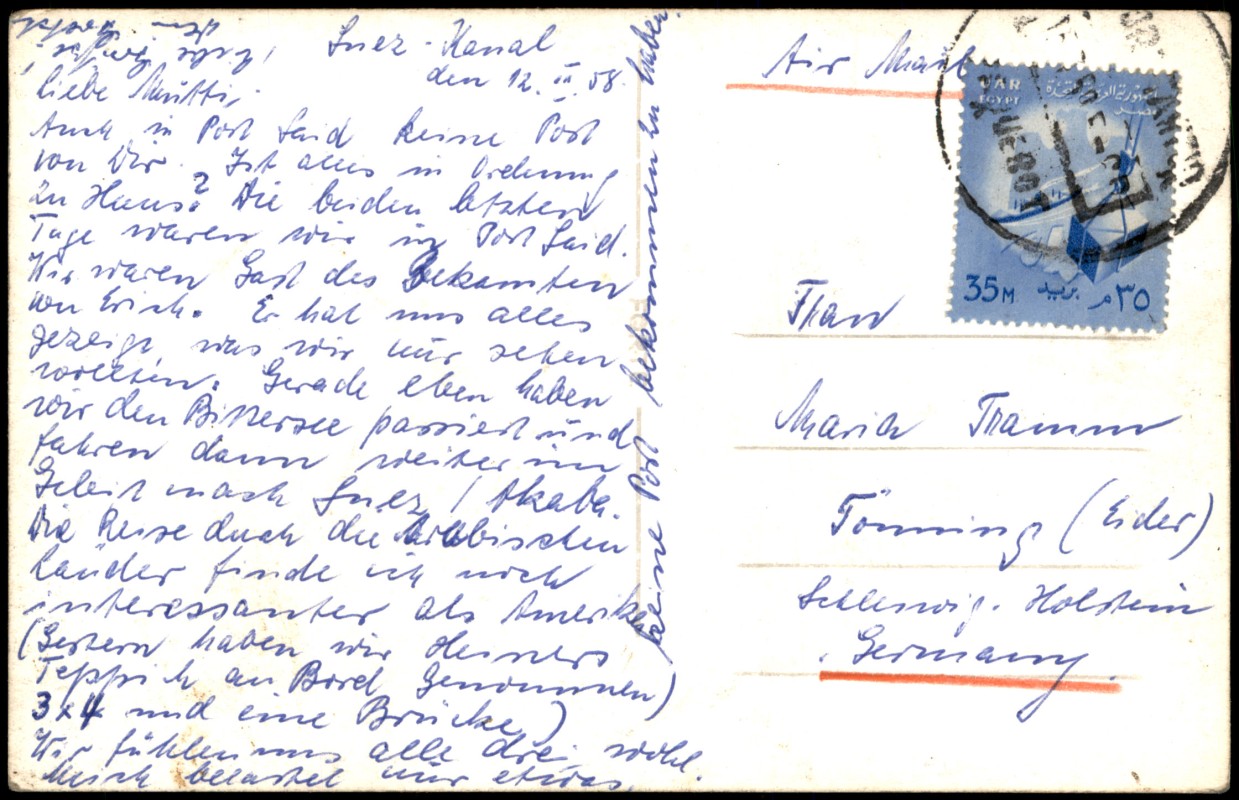 Suez-Kanal
den 12. III. 58.
Liebe Mutti,
Auch in Port Said keine Post
von Dir. Ist alles in Ordnung
zu Haus? Die beiden letzten
Tage waren wir in Port Said.
Wir waren Gast des Bekannten
von Erich. Er hat uns alles
gezeigt, was wir nur sehen
wollten. Gerade eben haben
wir den Bittersee passiert und
fahren dann weiter im
Geleit nach Suez / Akaba.
Die Reise durch die Arabischen
Länder finde ich noch
interessanter als Amerika
(Gestern haben wir Heiners
Teppich an Bord genommen)
3x4 und eine Brücke)
Wir fühlen uns alle drei wohl.
Mich belastet nur etwas,
keine Post bekommen zu haben
Air Mail
UAR
EGYPT
الجمهورية العربية المتحدة
مصر
35 M.
بريد
٣٥ م
Frau
Maria Thamm
Tönning (Eider)
Schleswig-Holstein
Germany